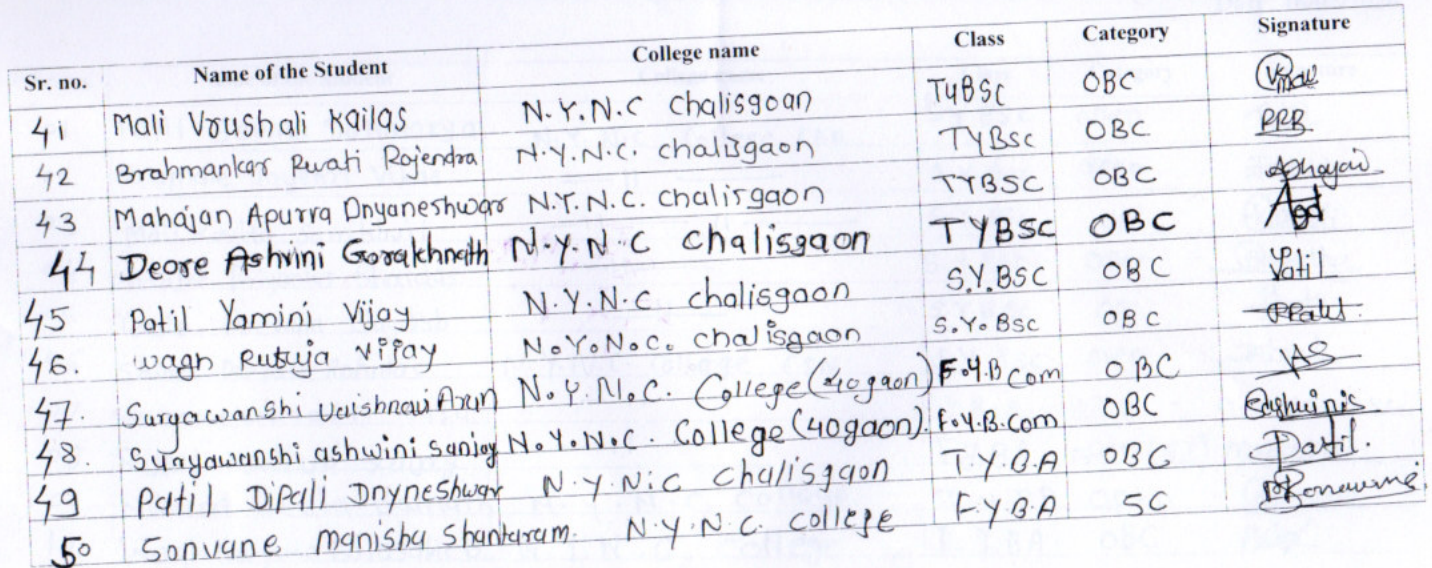 Sr. no. Name of the Student College name Class Category Signature
41 Mali Vrushali Kailas N.Y.N.C chalisgoan TYBSC OBC
42 Brahmankar Rwati Rajendra N.Y.N.C. chalisgaon TYBsc OBC PRB
43 Mahajan Apurva Dnyaneshwar N.Y.N.C. chalisgaon TYBSC OBC
44 Deore Ashvini Gorakhnath N.Y.N.C chalisgaon TYBSC OBC
45 Patil Yamini Vijay N.Y.N.C. chalisgaon S.Y.BSC OBC Yatil
46. wagh Rutuja vijay N.Y.N.C. chalisgaon S.Y.BSC OBC
47. Suryawanshi vaishnavi Arun N.Y.N.C. College (40gaon) F.Y.B Com OBC AS
48. Suryawanshi ashwini sanjay N.Y.N.C. College (40gaon). F.Y.B.Com OBC
49 Patil Dipali Dnyneshwar N.Y.N.C chalisgaon T.Y.B.A OBC Patil.
50 Sonvane manisha Shantaram. N.Y.N.C. college F.Y.B.A SC